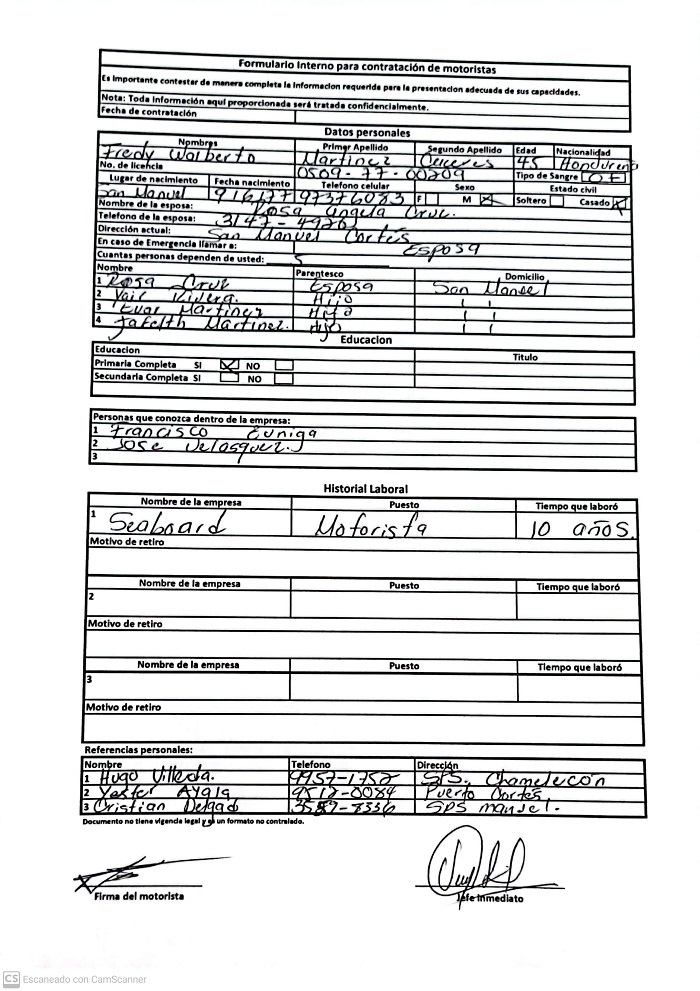 Formulario Interno para contratación de motoristas
Es Importante contestar de manera completa la informacion requerida para la presentacion adecuada de sus capacidades.
Nota: Toda información aquí proporcionada será tratada confidencialmente.
Fecha de contratación
Datos personales
Nombres Primer Apellido Segundo Apellido Edad Nacionalidad
Fredy Walberto Martinez 45 Hondureño
No. de licencia 0509-77-00209 Tipo de Sangre O+
Lugar de nacimiento Fecha nacimiento Telefono celular Sexo Estado civil
San Manuel 97376083 F M X Soltero Casado X
Nombre de la esposa: Rosa angela Cruz.
Telefono de la esposa: 3147-4926
Dirección actual: San Manuel Cortés
En caso de Emergencia llamar a: Esposa
Cuantas personas dependen de usted: 5
Nombre Parentesco Domicilio
1 Rosa Cruz Esposa San Manuel
2 Yair Rivera. Hijo ı ı
3 Evar Martinez Hijo ı ı
4 Martinez. Hijo ı ı
Educacion
Educacion Titulo
Primaria Completa SI X NO
Secundaria Completa SI NO
Personas que conozca dentro de la empresa:
1 Francisco Euniga
2 Jose Velasquez.
3
Historial Laboral
Nombre de la empresa Puesto Tiempo que laboró
1 Seaboard Motorista 10 años.
Motivo de retiro
Nombre de la empresa Puesto Tiempo que laboró
2
Motivo de retiro
Nombre de la empresa Puesto Tiempo que laboró
3
Motivo de retiro
Referencias personales:
Nombre Telefono Dirección
1 Hugo Villeda. 9957-1752 SPS. Chamelecón
2 Yester Ayala 9512-0084 Puerto Cortés
3 Cristian Delgado 3587-8356 SPS manuel.
Documento no tiene vigencia legal y es un formato no controlado.
Firma del motorista Jefe inmediato
CS Escaneado con CamScanner